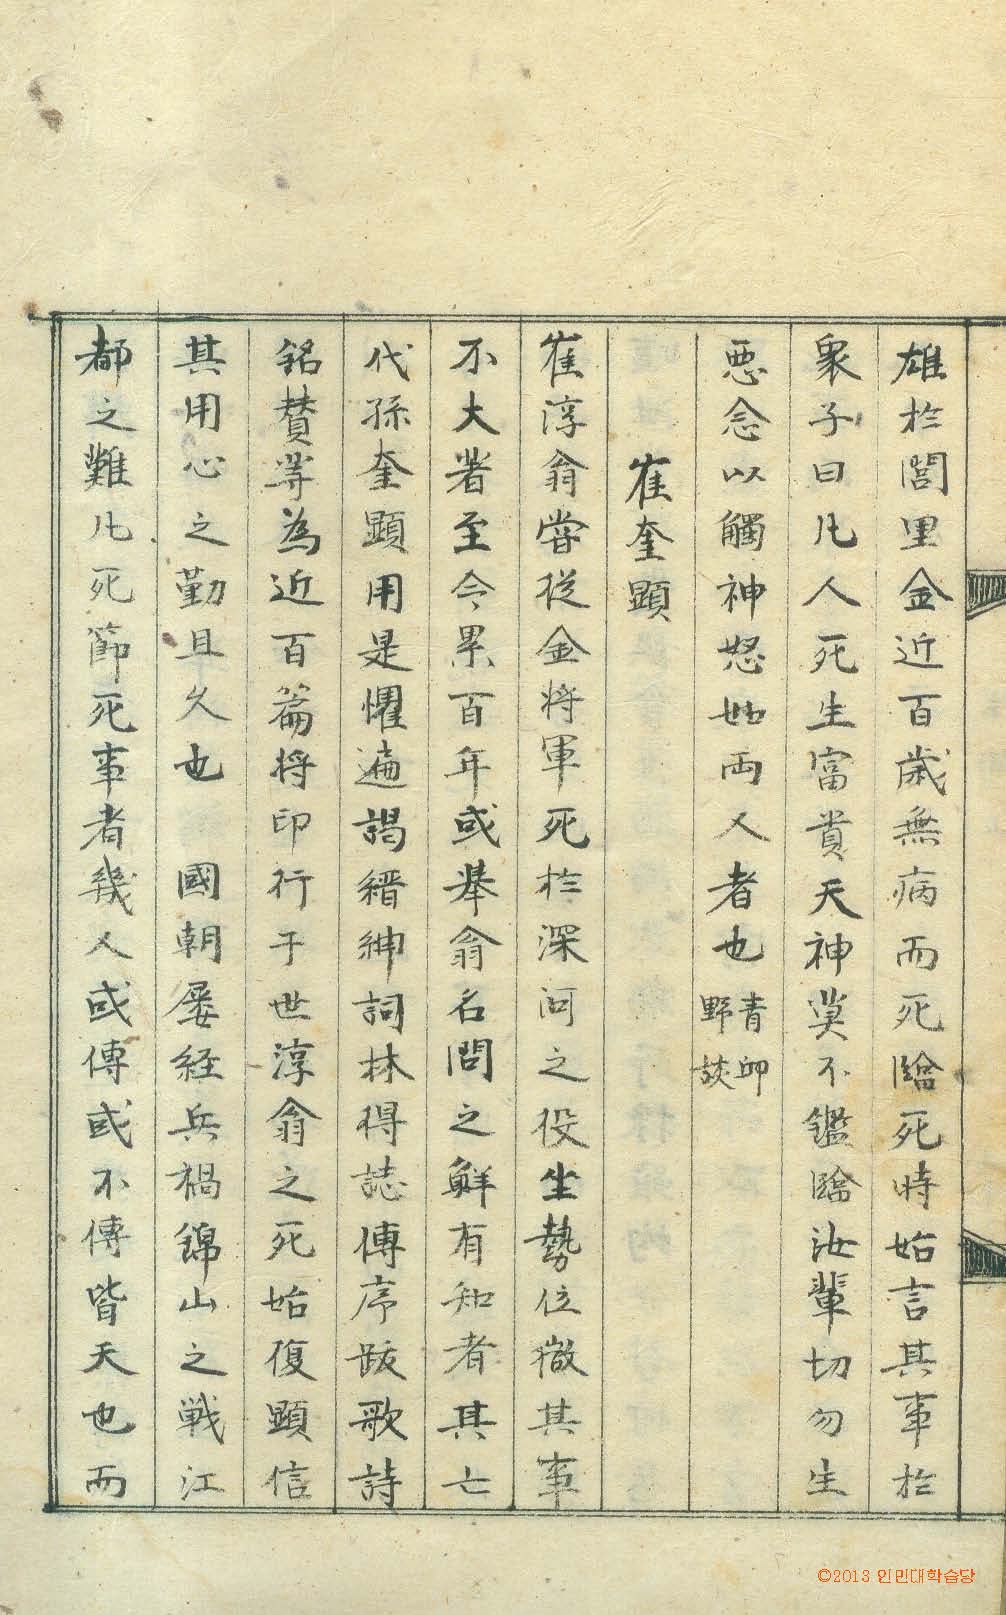 雄於閭里金近百歲無病而死臨死時始言其事於
衆子曰凡人死生富貴天神莫不鑑臨汝輩切勿生
惡念以觸神怒如両人者也 青邱野談
崔奎顯
崔淳翁嘗從金将軍死於深河之役坐勢位微其事
不大著至今累百年或擧翁名問之鮮有知者其七
代孫奎顯用是懼遍謁縉紳詞林得誌傳序跋歌詩
銘賛等為近百篇将印行于世淳翁之死始復顯信
其用心之勤且久也 國朝屢経兵禍錦山之戦江
都之難凡死節死事者幾人或傳或不傳皆天也而
©2013 인민대학습당